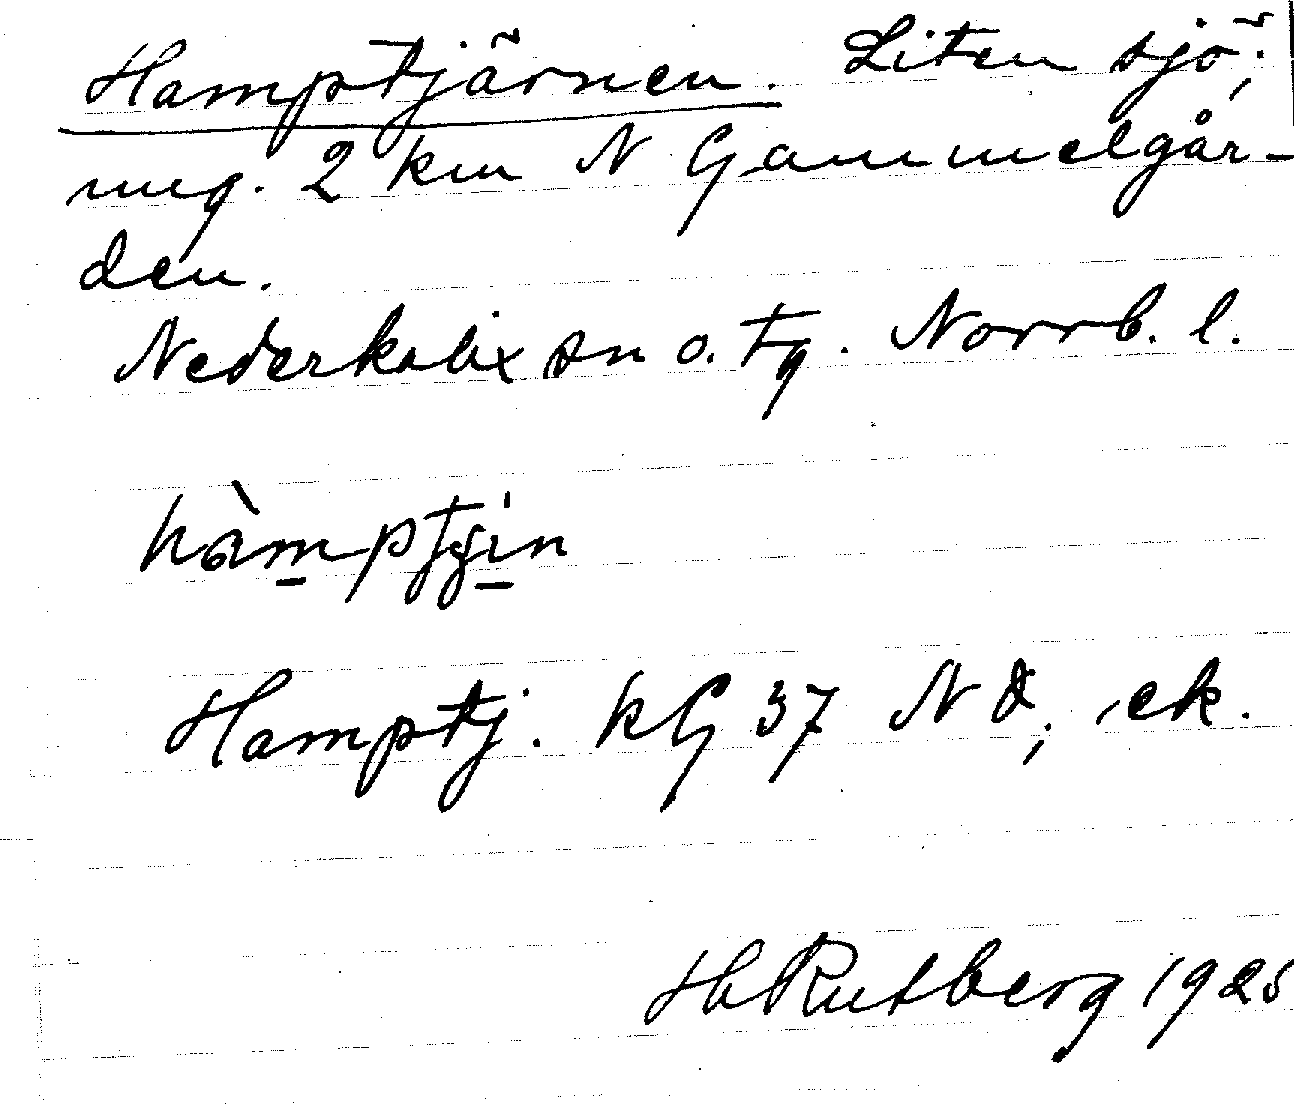 Hamptjärnen. Liten sjö;
ung. 2 km N Gammelgår-
den.
Nederkalix sn o. tg. Norrb. l.
hàmptjin
Hamptj. kG 37 NO, ek.
H Rutberg 1925